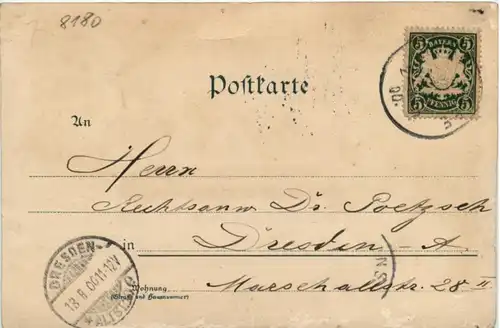 8180
BAYERN
5 5
5 PFENNIG 5
Postkarte
An
Herrn
Rechtsanw. Dr. Poetzsch
in Dresden-A
Wohnung
(Straße und Hausnummer)
Marschallstr. 28 II
DRESDEN-
18.8.00 11-12V
ALTST.